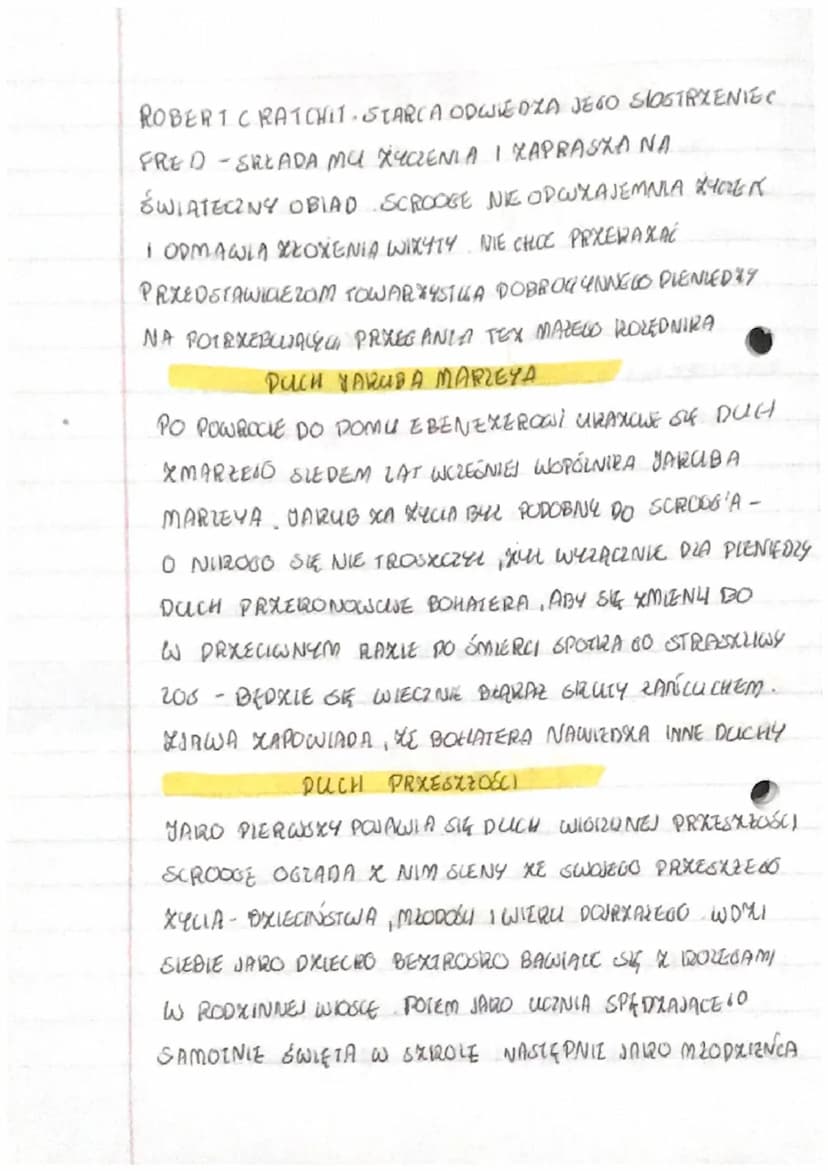 ROBERT CRATCHIT. STARCA ODWIEDZA JEGO SIOSTRZENIEC
FRED - SKŁADA MU ŻYCZENIA I ZAPRASZA NA
ŚWIĄTECZNY OBIAD. SCROOGE NIE ODWZAJEMNIA ŻYCZEŃ
I ODMAWIA ZŁOŻENIA WIZYTY. NIE CHCE PRZEKAZAĆ
PRZEDSTAWICIELOM TOWARZYSTWA DOBROCZYNNEGO PIENIĘDZY
NA POTRZEBUJĄCYCH PRZEGANIA TEŻ MAŁEGO KOLĘDNIKA
DUCH JAKUBA MARLEYA
PO POWROCIE DO DOMU EBENEZEROWI UKAZUJE SIĘ DUCH
ZMARŁEGO SIEDEM LAT WCZEŚNIEJ WSPÓLNIKA JAKUBA
MARLEYA. JAKUB ZA ŻYCIA BYŁ PODOBNY DO SCROOG'A -
O NIKOGO SIĘ NIE TROSZCZYŁ, ŻYŁ WYŁĄCZNIE DLA PIENIĘDZY
DUCH PRZEKONUJE BOHATERA, ABY SIĘ ZMIENIŁ BO
W PRZECIWNYM RAZIE PO ŚMIERCI SPOTKA GO STRASZLIWY
LOS - BĘDZIE SIĘ WIECZNIE BŁĄKAŁ SKUTY ŁAŃCUCHEM.
ZJAWA ZAPOWIADA, ŻE BOHATERA NAWIEDZĄ INNE DUCHY
DUCH PRZESZŁOŚCI
JAKO PIERWSZY POJAWIA SIĘ DUCH WIGILIJNEJ PRZESZŁOŚCI
SCROOGE OGLĄDA Z NIM SCENY ZE SWOJEGO PRZESZŁEGO
ŻYCIA - DZIECIŃSTWA, MŁODOŚCI I WIEKU DOJRZAŁEGO. WIDZI
SIEBIE JAKO DZIECKO BEZTROSKO BAWIĄCE SIĘ Z KOLEGAMI
W RODZINNEJ WIOSCE. POTEM JAKO UCZNIA SPĘDZAJĄCEGO
SAMOTNIE ŚWIĘTA W SZKOLE NASTĘPNIE JAKO MŁODZIEŃCA